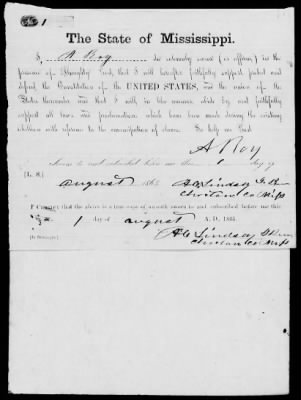 1
The State of Mississippi.
I, A Roy do solemnly swear (or affirm) in the
presence of Almighty God, that I will hereafter faithfully support, protect and
defend the Constitution of the UNITED STATES, and the union of the
States thereunder and that I will, in like manner abide by, and faithfully
support all laws and proclamations which have been made during the existing
rebellion with reference to the emancipation of slaves. So help me God.
A Roy
Sworn to and subscribed before me this 1 day of
[L. S.] August 1865 Lindsay
Co Miss
I CERTIFY that the above is a true copy of an oath sworn to and subscribed before me this
1 day of August A. D., 1865.
Lindsay
Co Miss